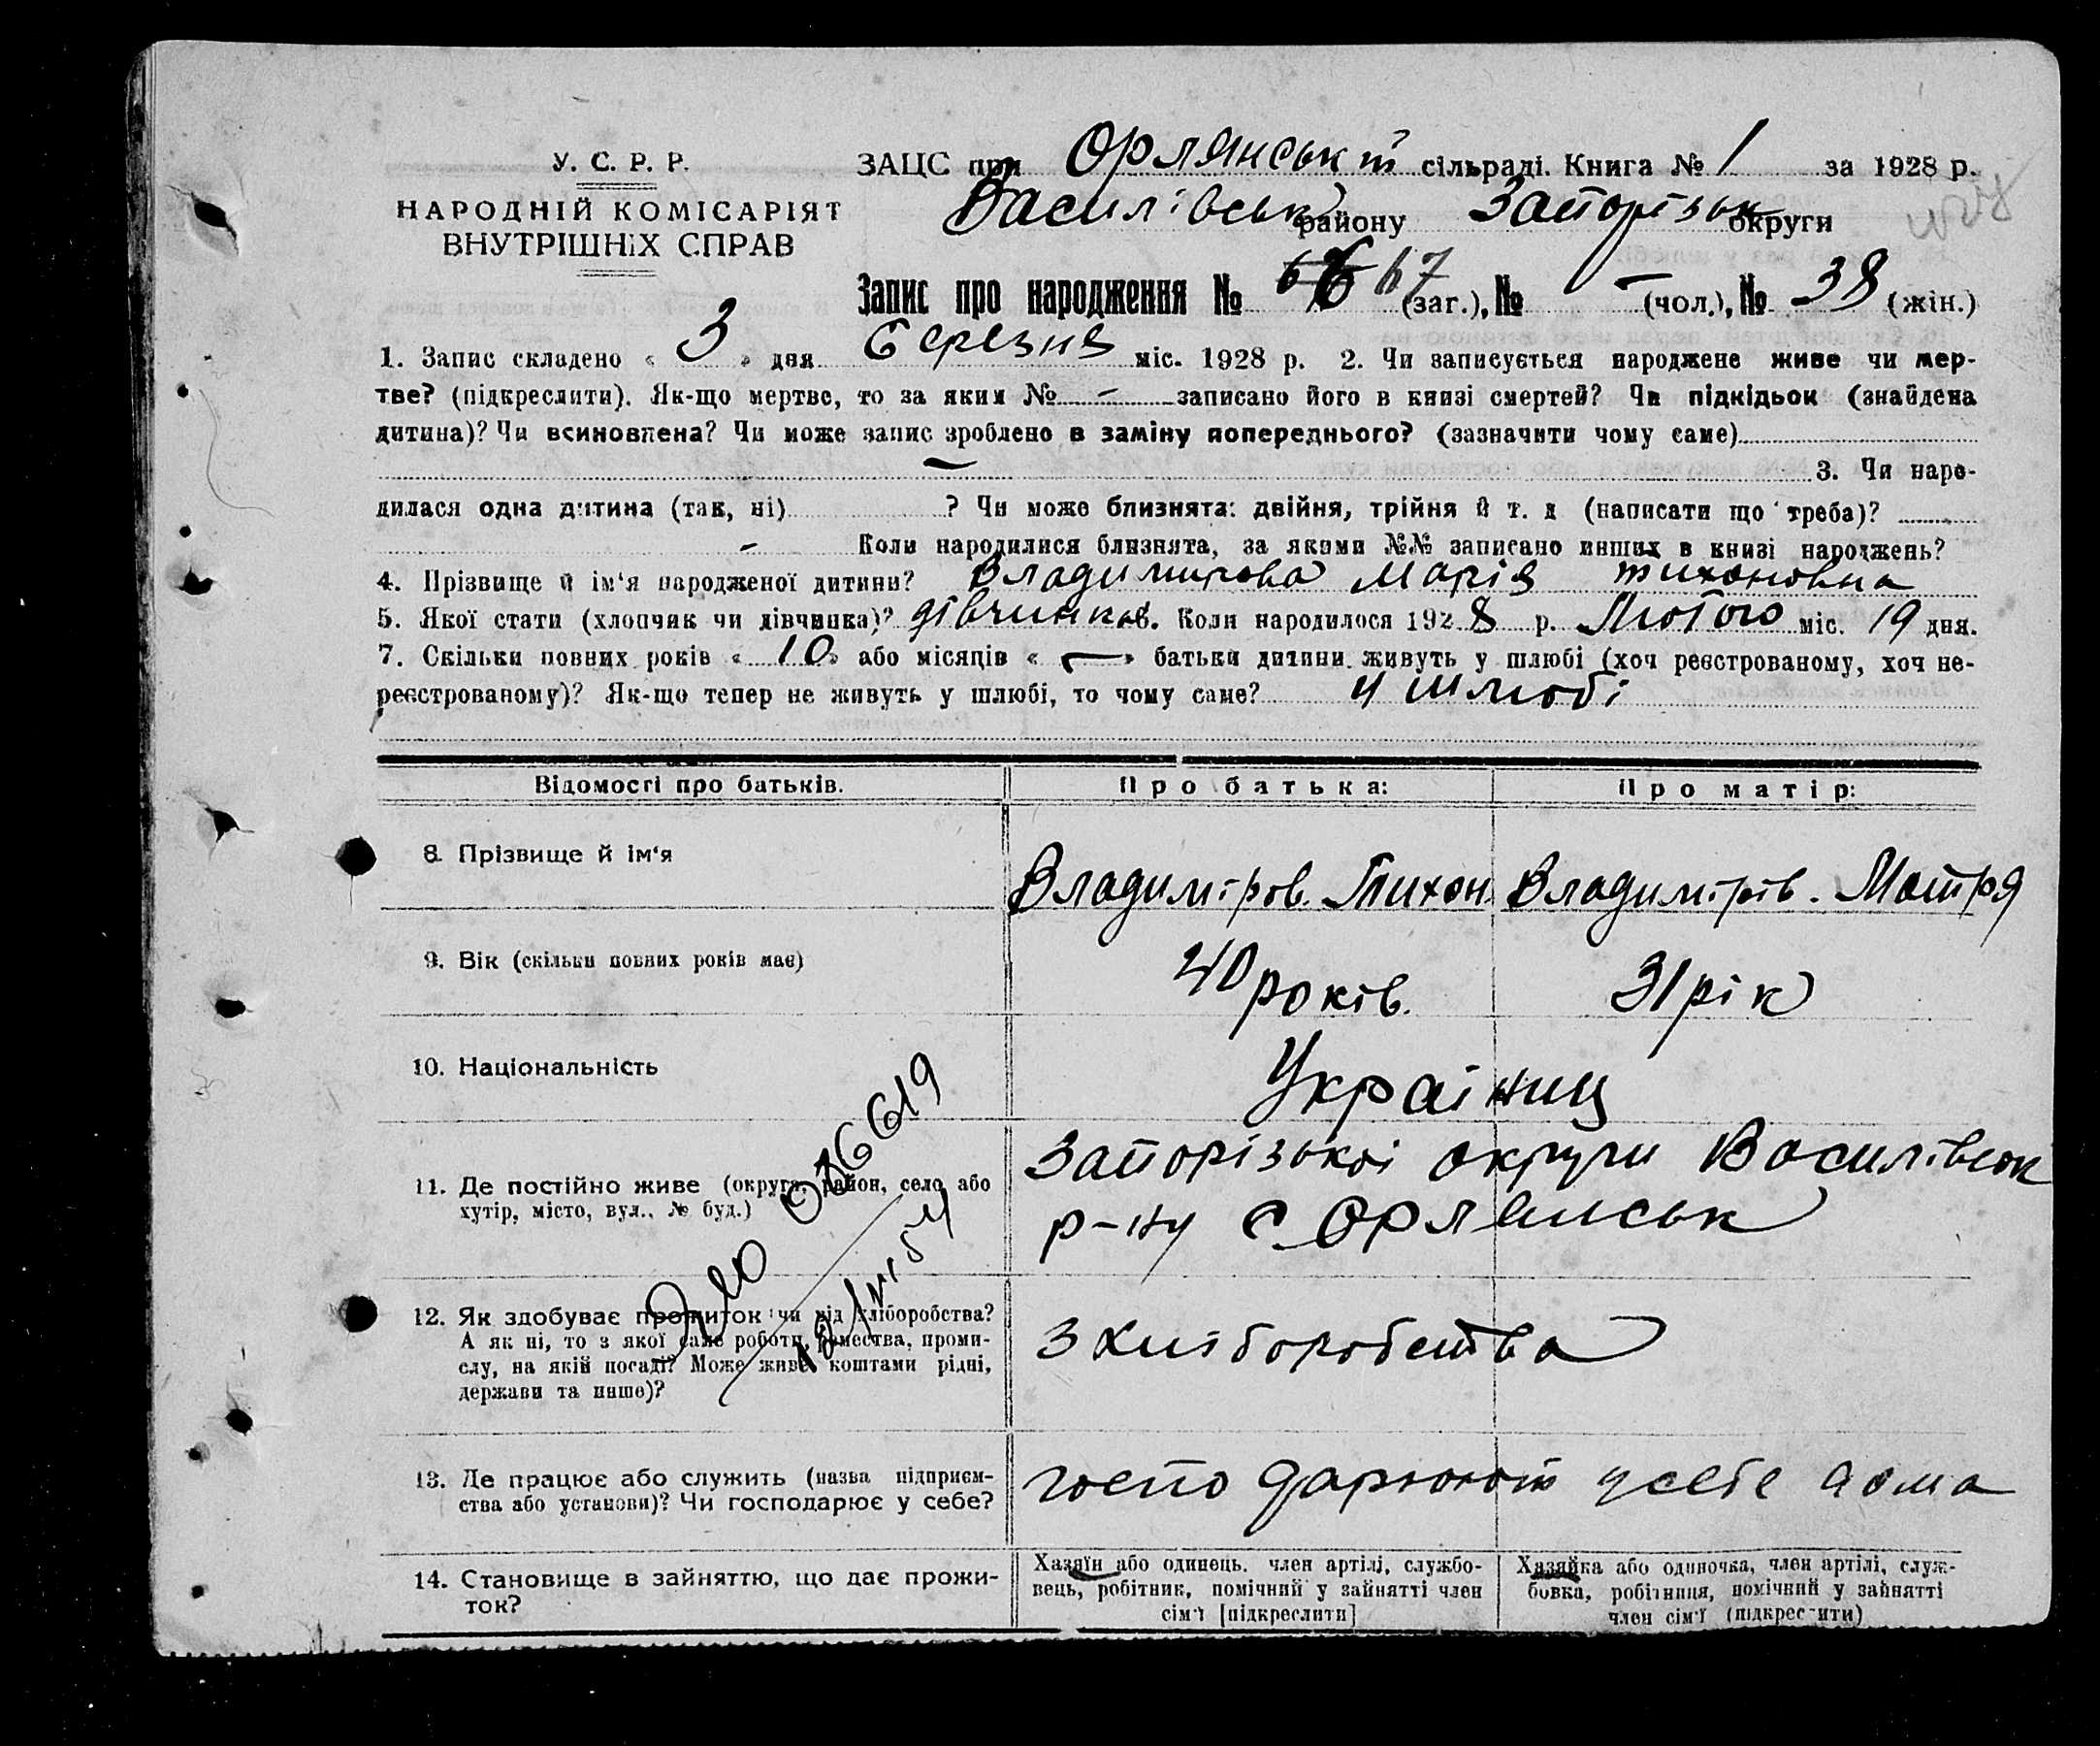 У. С. Р. Р.
НАРОДНІЙ КОМІСАРІЯТ
ВНУТРІШНІХ СПРАВ
ЗАЦС при Орлянській сільраді. Книга № 1 за 1928 р.
Василівськ району Запорізьк округи
Запис про народження № 66 67 (заг.), № — (чол.), № 38 (жін.)
1. Запис складено « 3 » дня березня міс. 1928 р. 2. Чи записується народжене живе чи мер-
тве? (підкреслити). Як-що мертве, то за яким № - записано його в книзі смертей? Чи підкідьок (знайдена
дитина)? Чи всиновлена? Чи може запис зроблено в заміну попереднього? (зазначити чому саме)
— 3. Чи наро-
дилася одна дитина (так, ні) ? Чи може близнята: двійня, трійня й т. д (написати що треба)?
- Коли народилися близнята, за якими №№ записано инших в книзі народжень?
4. Прізвище й ім‘я народженої дитини? Владимирова Марія тихоновна
5. Якої стати (хлопчик чи дівчинка)? дівчинка. Коли народилося 1928 р. Лютого міс. 19 дня.
7. Скільки повних років « 10 » або місяців « — » батьки дитини живуть у шлюбі (хоч реєстрованому, хоч не-
реєстрованому)? Як-що тепер не живуть у шлюбі, то чому саме? у шлюбі
Відомості про батьків. Про батька: Про матір:
8. Прізвище й ім‘я Владиміров. Тихон Владимірів. Мотря
9. Вік (скільки повних років має) 40 років. 31 рік
10. Національність Україниц
11. Де постійно живе (округа, район, село або Запорізької округи Василівськ
хутір, місто, вул., № буд.) р-ну с Орлянськ
12. Як здобуває прожиток чи від хліборобства? з хліборобства
А як ні, то з якої саме роботи, ремества, проми-
слу, на якій посаді? Може живе коштами рідні,
держави та инше)?
13. Де працює або служить (назва підприєм- господарюють у себе дома
ства або установи)? Чи господарює у себе?
14. Становище в зайняттю, що дає прожи-
ток?
Хазяїн або одинець, член артілі, службо-
вець, робітник, помічний у зайнятті член
сім'ї [підкреслити]
Хазяйка або одиночка, член артілі, служ-
бовка, робітниця, помічний у зайнятті
член сім'ї (підкреслити)